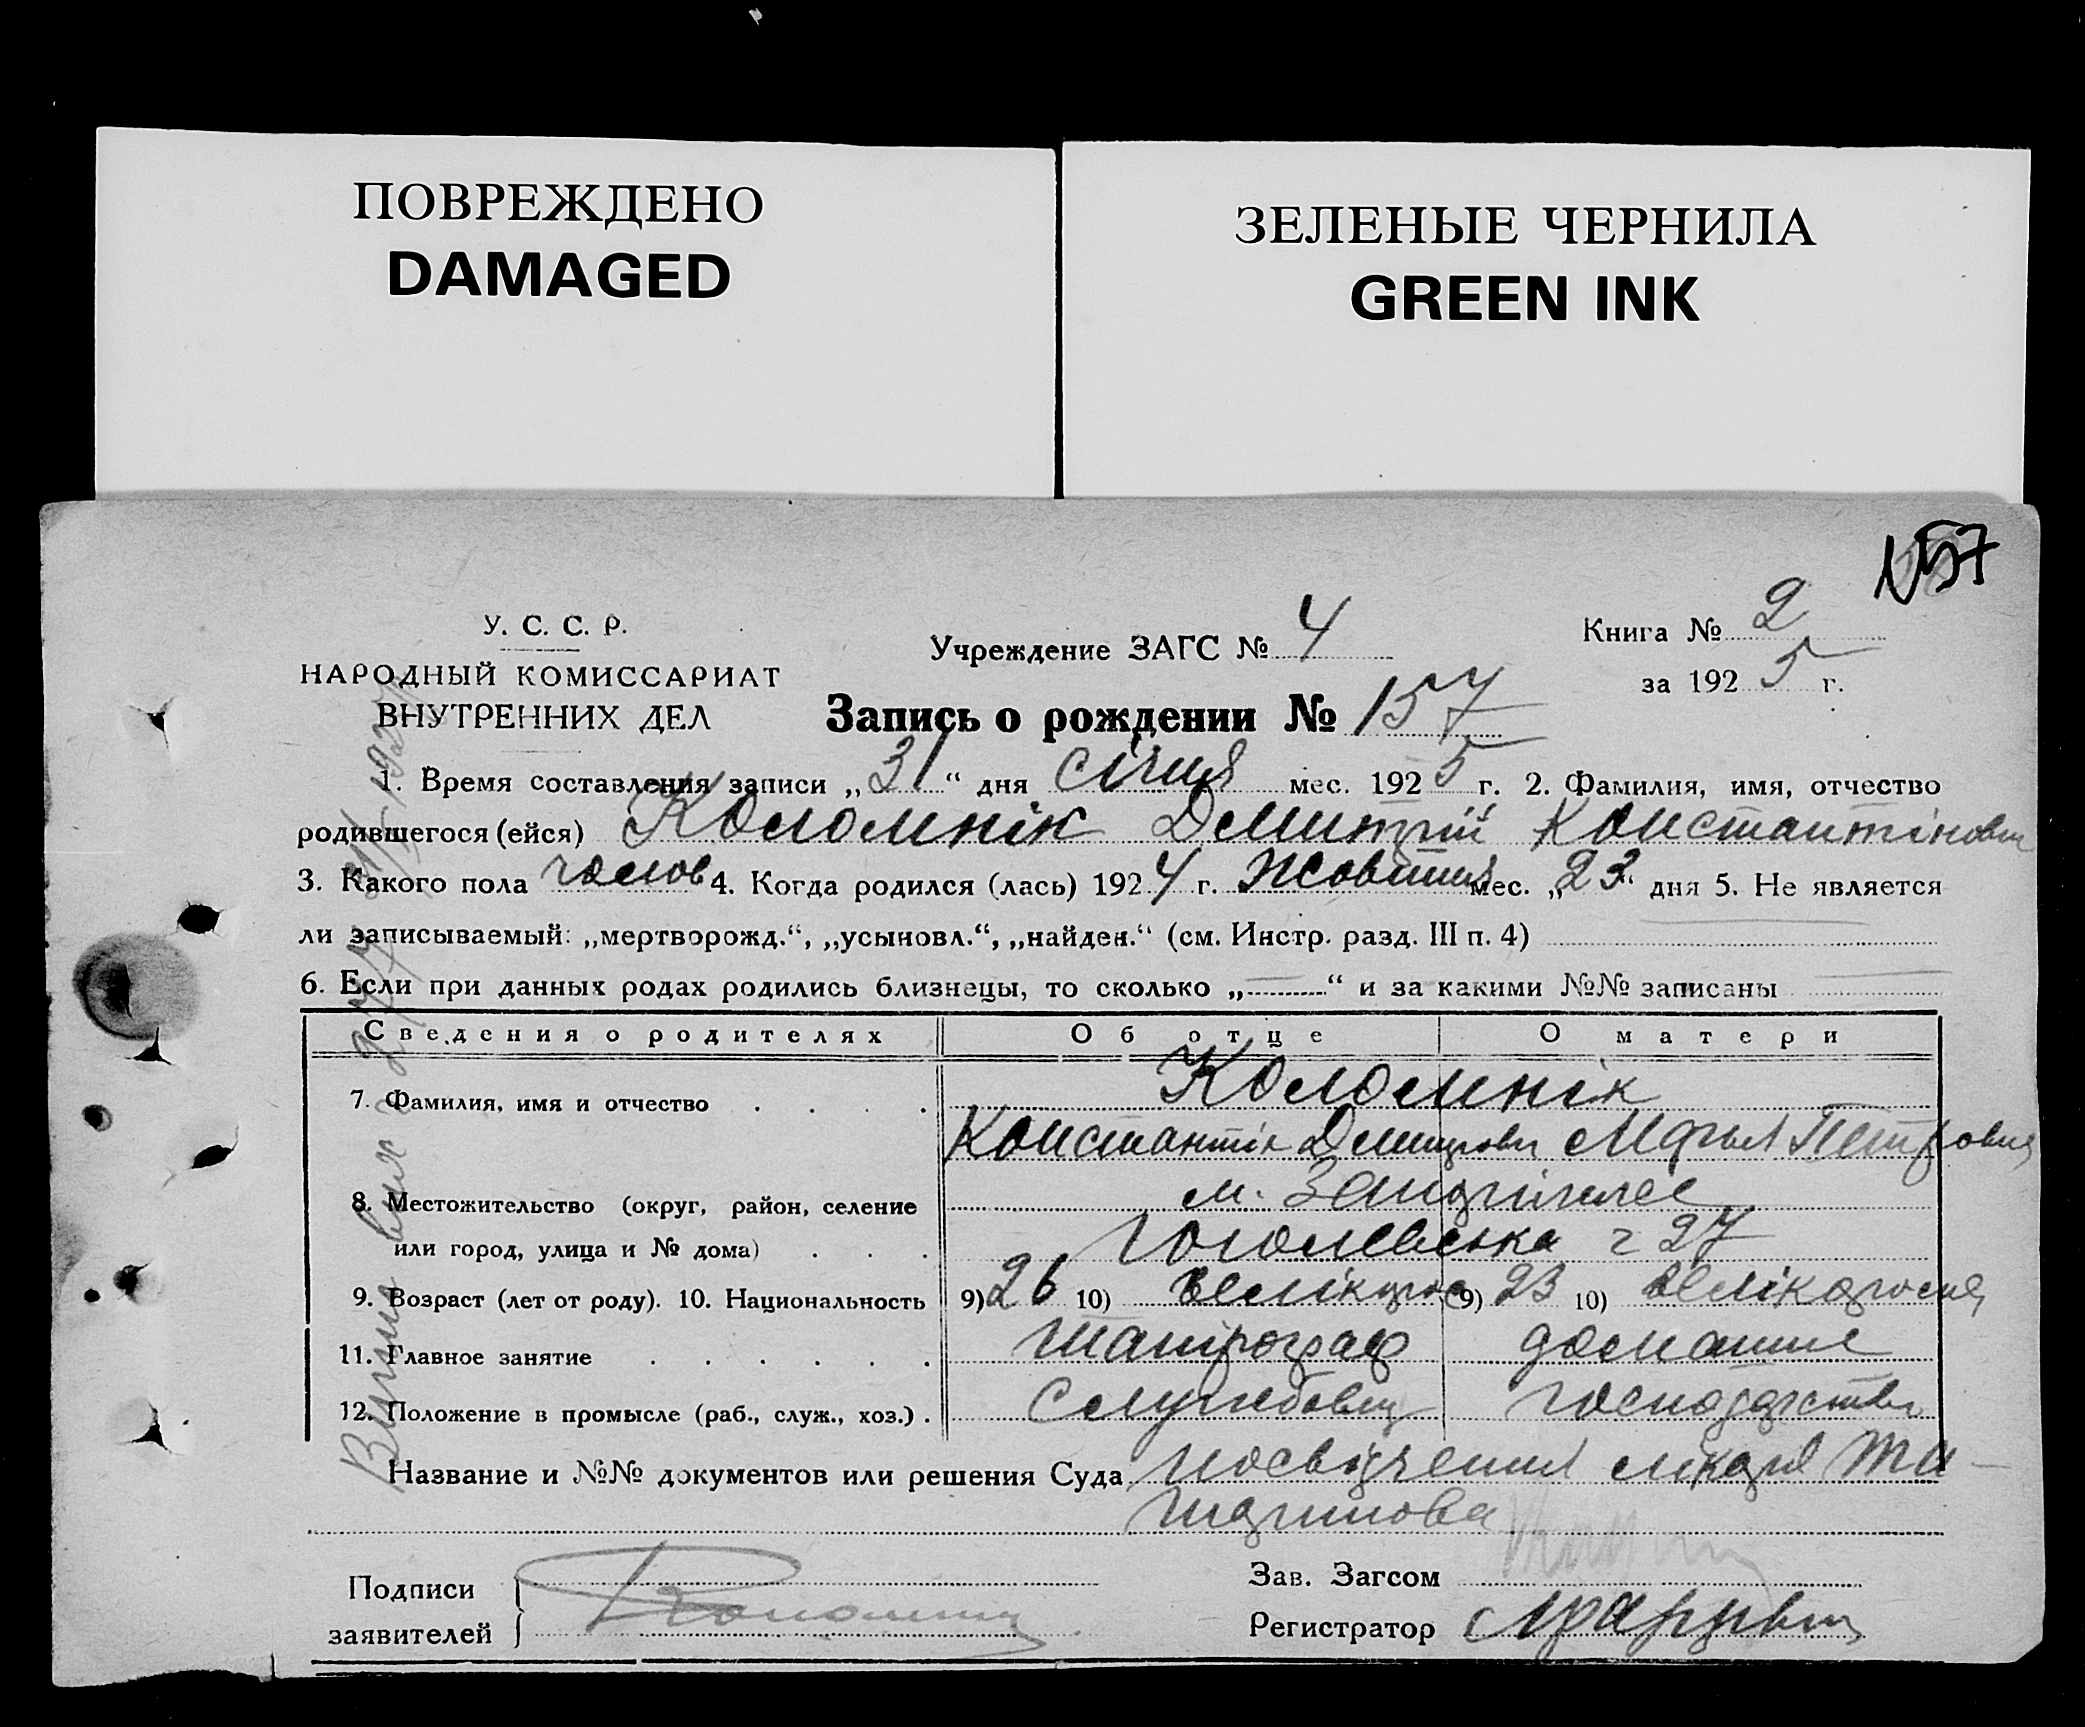 ПОВРЕЖДЕНО
DAMAGED
ЗЕЛЕНЫЕ ЧЕРНИЛА
GREEN INK
157
У. С. С. Р.
НАРОДНЫЙ КОМИССАРИАТ
ВНУТРЕННИХ ДЕЛ
Учреждение ЗАГС № 4
Книга № 2
за 192 5 г.
Запись о рождении № 157
1. Время составления записи „31“ дня січня мес. 192 5 г. 2. Фамилия, имя, отчество
родившегося (ейся) Коломнік Дмитрій Константінович
3. Какого пола чолов 4. Когда родился (лась) 192 4 г. Жовтня мес. „23“ дня 5. Не является
ли записываемый: „мертворожд.“, „усыновл.“, „найден.“ (см. Инстр. разд. III п. 4)
6. Если при данных родах родились близнецы, то сколько „ “ и за какими №№ записаны
Сведения о родителях Об отце О матери
7. Фамилия, имя и отчество . . . . Коломнік
Константін Дмитрович Петровна
8. Местожительство (округ, район, селение м.
или город, улица и № дома) . . . Гоголевська ч 27
9. Возраст (лет от роду). 10. Национальность 9) 26 10) велікорос 9) 23 10) велікоросія
11. Главное занятие . . . . . . домашнє
12. Положение в промысле (раб., служ., хоз.) . службовец господарство
Название и №№ документов или решения Суда посвідчення лікаря
Подписи
заявителей
Зав. Загсом
Регистратор